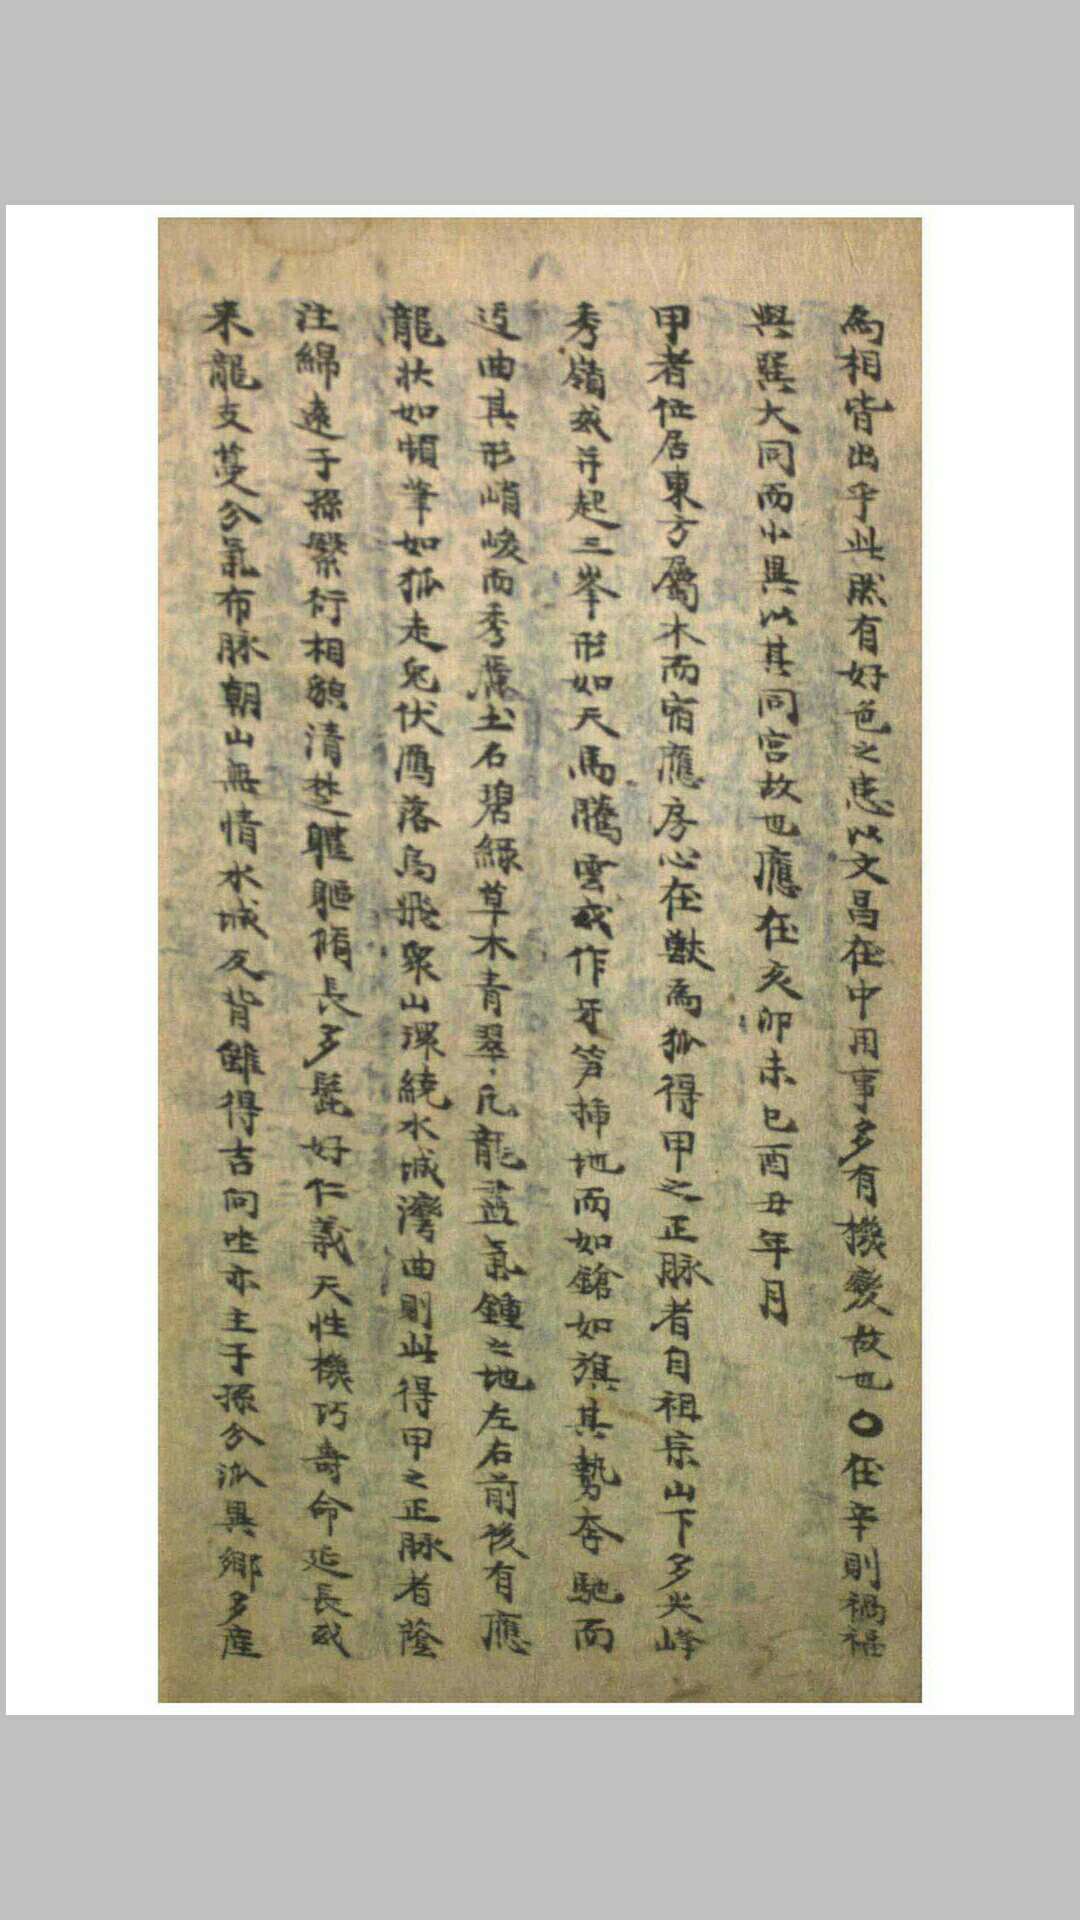 為相皆出乎此然有好色之患以文昌在中用事多有機變故也〇在辛則禍福
與巽大同而小異以其同宮故也應在亥卯未巳酉丑年月
甲者位居東方屬木而宿應房心在獸為狐得甲之正脉者自祖宗山下多尖峰
秀嶺或并起三峯形如天馬騰雲或作牙笏揷地而如鎗如旗其勢奔馳而
迢曲其形峭峻而秀麗土石碧綠草木青翠凡龍盡氣鍾之地左右前後有應
龍狀如頓筆如狐走兔伏鴈落烏飛衆山環繞水城灣曲則此得甲之正脉者蔭
注綿遠子孫繁衍相貌清楚軆軀脩長多髭好仁義天性機巧壽命延長或
來龍支蔓分氣布脉朝山無情水城反背雖得吉向坐亦主子孫分派異鄉多産